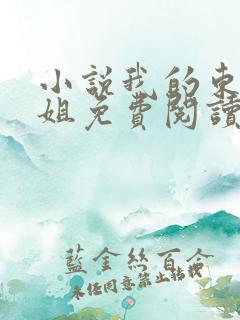 小說我的東
姐免費閱讀
藍金絲百合
未經同意禁止轉載